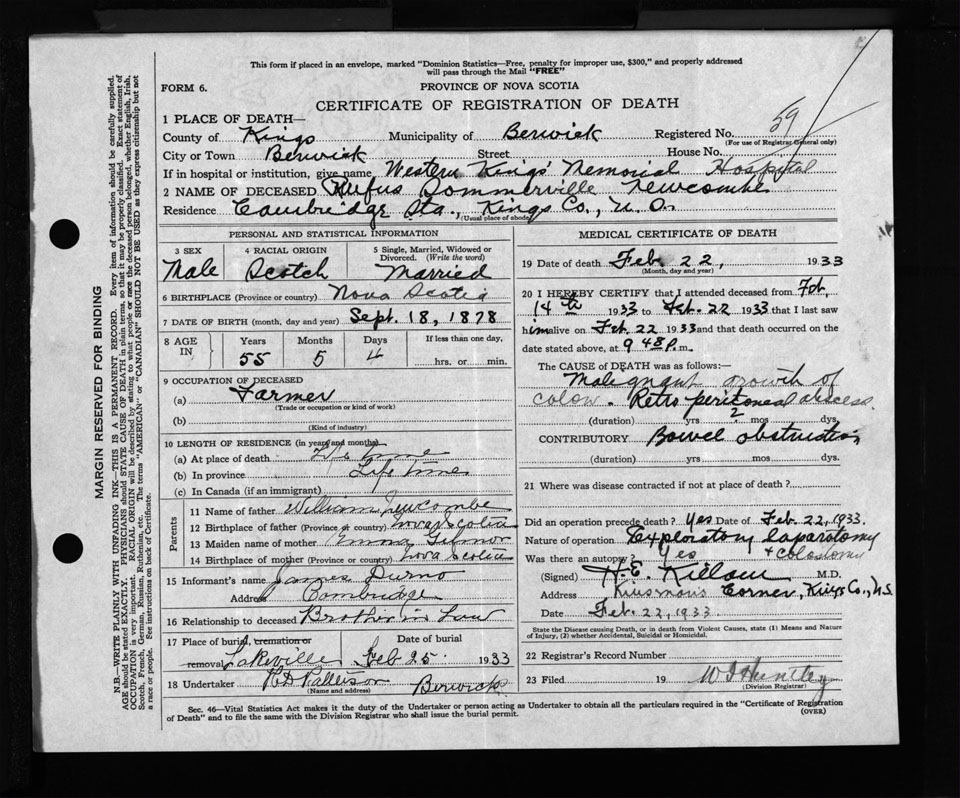 This form if placed in an envelope, marked "Dominion Statistics—Free, penalty for improper use, $300," and properly addressed
will pass through the Mail "FREE"
FORM 6.
PROVINCE OF NOVA SCOTIA
CERTIFICATE OF REGISTRATION OF DEATH
1 PLACE OF DEATH—
County of Kings Municipality of Berwick Registered No. 59
(For use of Registrar General only)
City or Town Berwick Street House No.
If in hospital or institution, give name Western Kings' Memorial Hospital
2 NAME OF DECEASED Rufus Sommerville Newcombe
Residence Cambridge Sta., Kings Co., N.S.
(Usual place of abode)
PERSONAL AND STATISTICAL INFORMATION
3 SEX 4 RACIAL ORIGIN 5 Single, Married, Widowed or
Divorced. (Write the word)
Male Scotch Married
6 BIRTHPLACE (Province or country) Nova Scotia
7 DATE OF BIRTH (month, day and year) Sept. 18, 1878
8 AGE IN Years Months Days If less than one day,
55 5 4 hrs. or min.
9 OCCUPATION OF DECEASED
(a) Farmer
(Trade or occupation or kind of work)
(b)
(Kind of industry)
10 LENGTH OF RESIDENCE (in years and months)
(a) At place of death Life time
(b) In province Life time
(c) In Canada (if an immigrant)
Parents
11 Name of father William Newcombe
12 Birthplace of father (Province or country) Nova Scotia
13 Maiden name of mother Emma
14 Birthplace of mother (Province or country) Nova Scotia
15 Informant's name James Durno
Address Cambridge
16 Relationship to deceased Brother in Law
17 Place of burial, cremation or Date of burial
removal Lakeville Feb 25 1933
18 Undertaker Berwick
(Name and address)
MEDICAL CERTIFICATE OF DEATH
19 Date of death Feb. 22, 1933
(Month, day and year)
20 I HEREBY CERTIFY that I attended deceased from Feb.
14th 1933 to Feb. 22 1933 that I last saw
him alive on Feb 22 1933 and that death occurred on the
date stated above, at 9 48 p.m.
The CAUSE OF DEATH was as follows:—
Malegnant growth of
colon. Retro peritoneal abscess
(duration) yrs 2 mos dys.
CONTRIBUTORY Bowel obstruction
(duration) yrs mos dys.
21 Where was disease contracted if not at place of death?
Did an operation precede death? Yes Date of Feb. 22, 1933.
Nature of operation Exploratory laparotomy
Was there an autopsy? Yes + colostomy
(Signed) H.E. Killam M.D.
Address Kinsman's Corner, Kings Co., N.S.
Date Feb. 22, 1933.
State the Disease causing Death, or in death from Violent Causes, state (1) Means and Nature
of Injury, (2) whether Accidental, Suicidal or Homicidal.
22 Registrar's Record Number
23 Filed 19 Huntley
(Division Registrar)
Sec. 46—Vital Statistics Act makes it the duty of the Undertaker or person acting as Undertaker to obtain all the particulars required in the "Certificate of Registration
of Death" and to file the same with the Division Registrar who shall issue the burial permit.
(OVER)
MARGIN RESERVED FOR BINDING
N.B.—WRITE PLAINLY WITH UNFADING INK—THIS IS A PERMANENT RECORD. Every item of information should be carefully supplied.
AGE should be stated EXACTLY. PHYSICIANS should STATE CAUSE OF DEATH in plain terms, so that it may be properly classified. Exact statement of
OCCUPATION is very important. RACIAL ORIGIN will be described by stating to what people or race the deceased person belonged, whether English, Irish,
Scotch, French, German, Russian, Ruthenian, etc. The terms "AMERICAN" or "CANADIAN" SHOULD NOT BE USED as they express citizenship but not
a race or people. See instructions on back of Certificate.